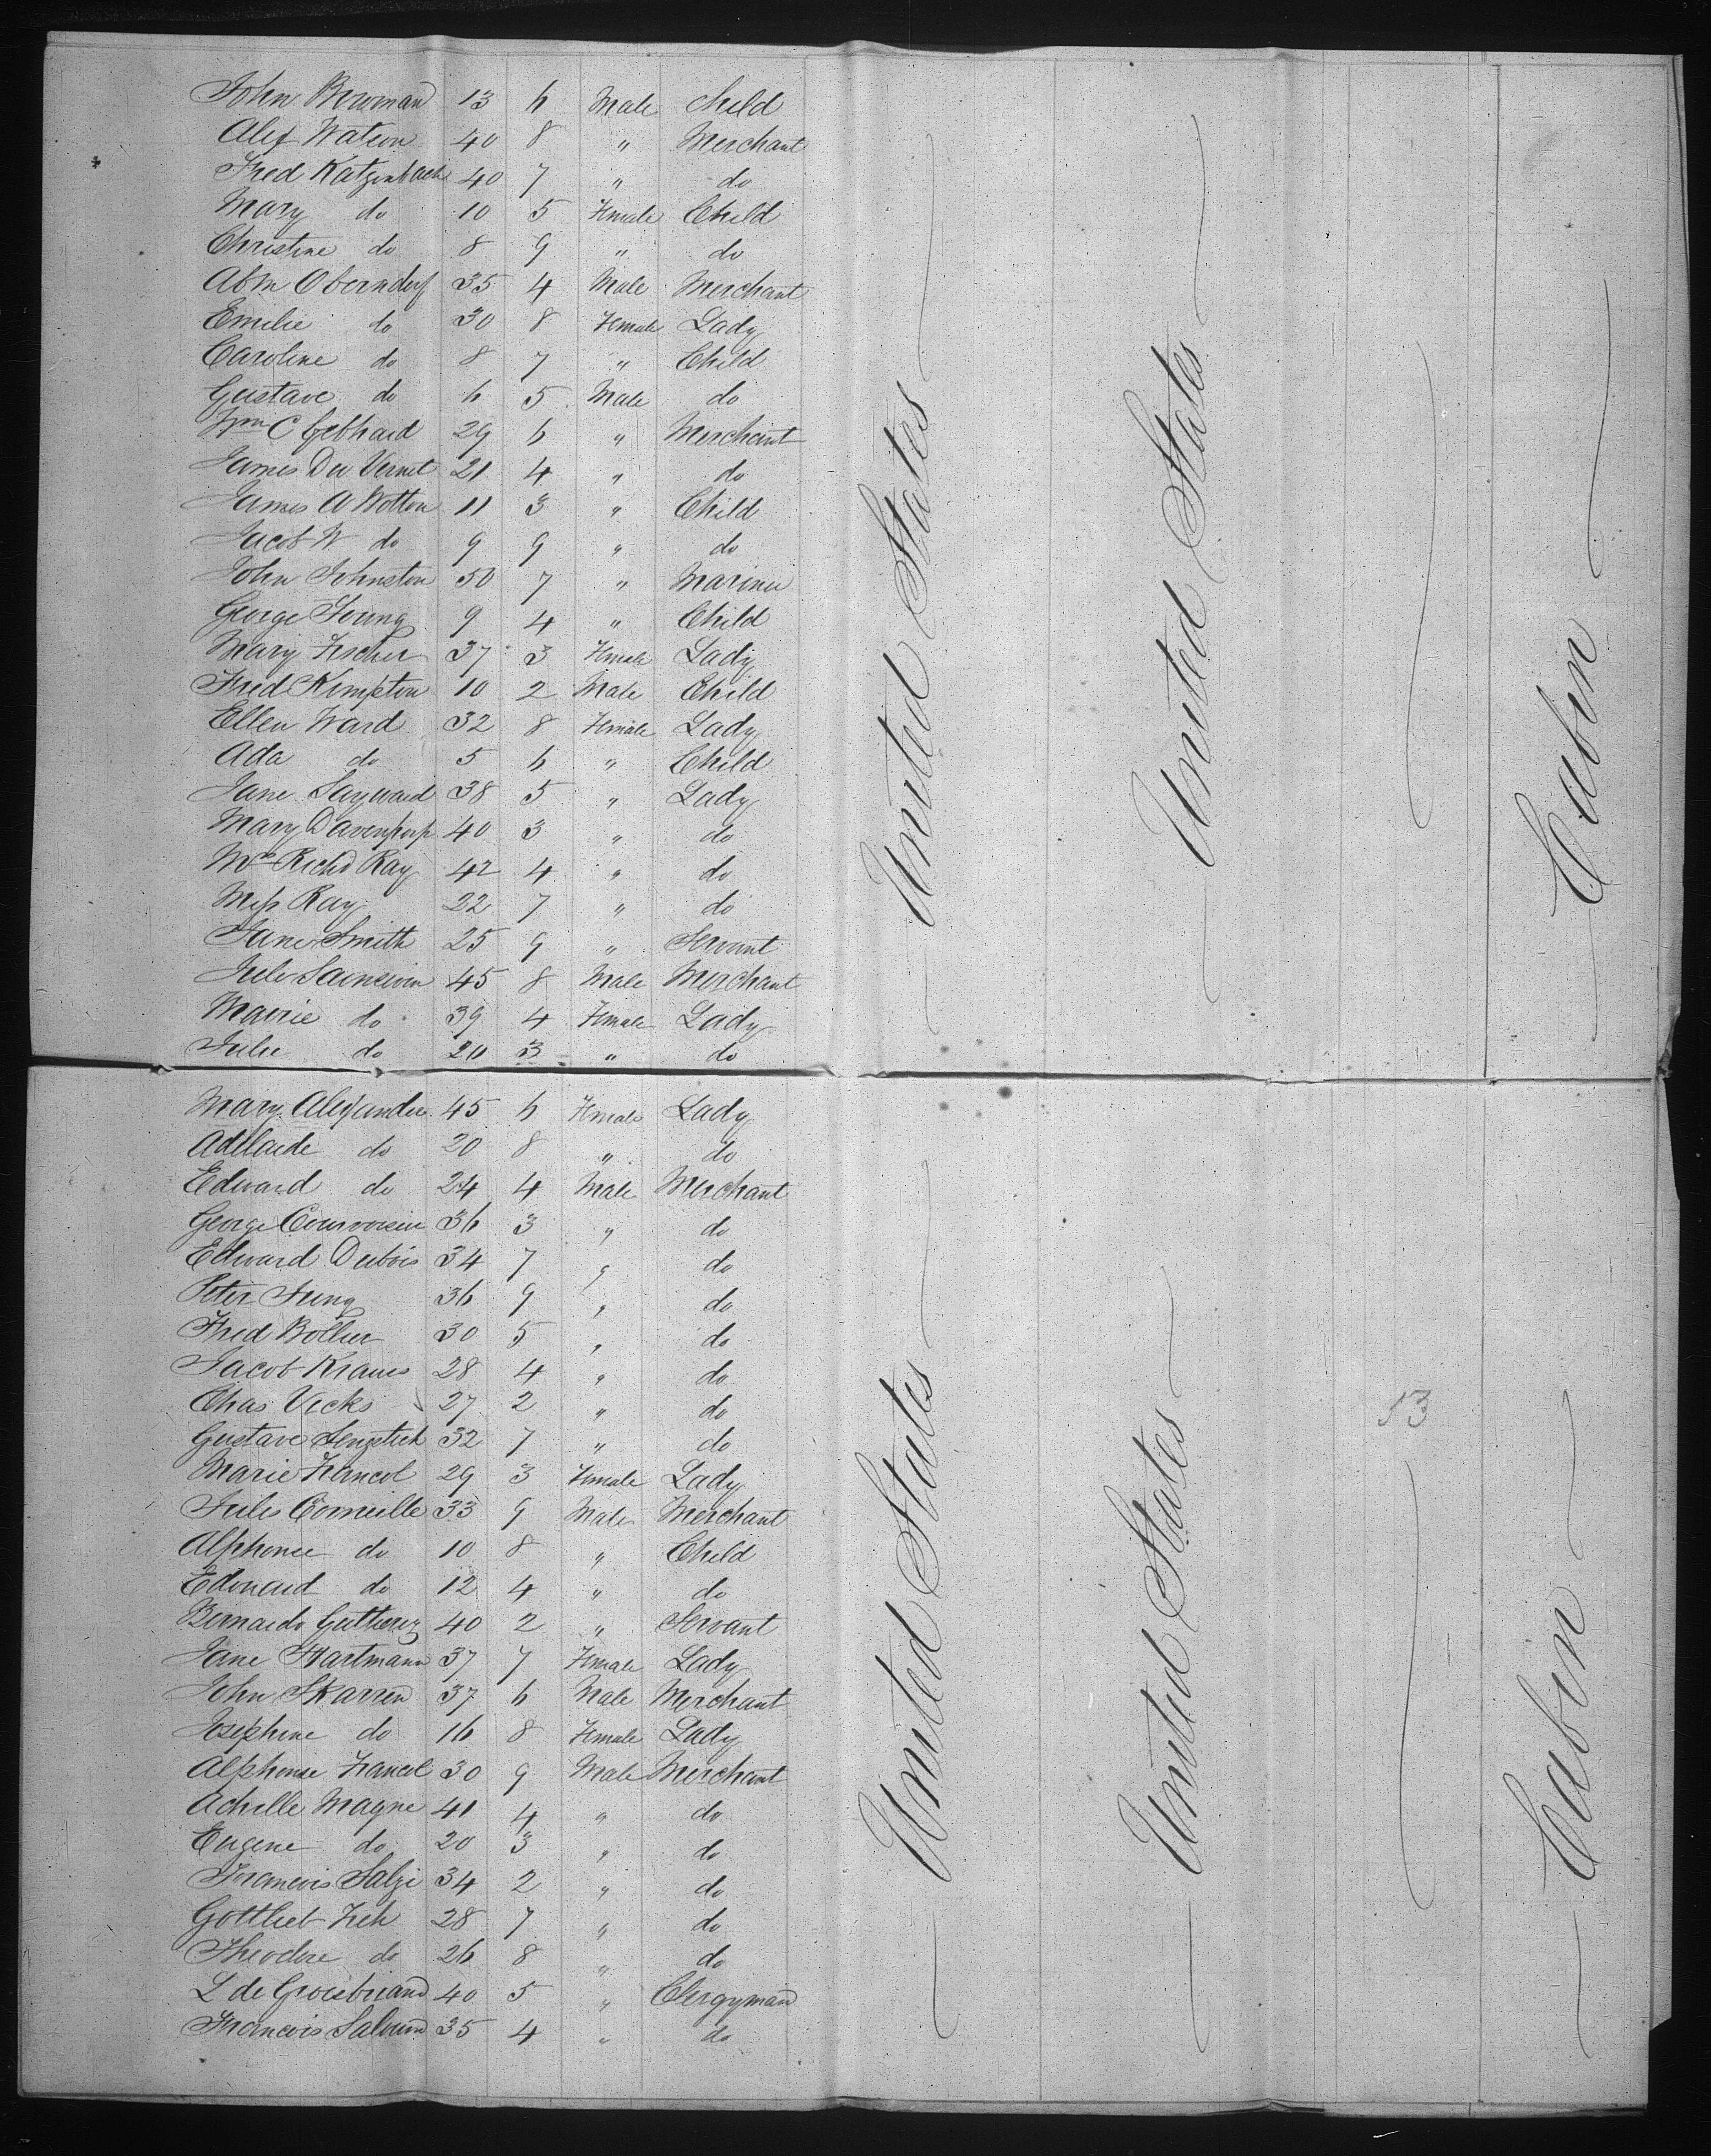 John Bowman 13 6 Male Child
Alex Watson 40 8 " Merchant
Fred Katzenbach 40 7 " do
Mary do 10 5 Female Child
Christine do 8 9 " do
Abm Oberndorf 35 4 Male Merchant
Emilie do 30 8 Female Lady
Caroline do 8 7 " Child
Gustave do 6 5 Male do
Wm C Gebhard 29 6 " Merchant
James Du Vernet 21 4 " do
James A Wotton 11 3 " Child
Jacob W do 9 9 " do
John Johnston 50 7 " Mariner
George Young 9 4 " Child
Mary Fischer 37 3 Female Lady
Fred Kimpton 10 2 Male Child
Ellen Ward 32 8 Female Lady
Ada do 5 6 " Child
Jane Sayward 38 5 " Lady
Mary Davenport 40 3 " do
Mrs Richd Ray 42 4 " do
Miss Ray 22 7 " do
Jane Smith 25 9 " Servant
Jules Sainsevin 45 8 Male Merchant
Mairie do 39 4 Female Lady
Julie do 20 3 " do
United States United States Cabin
Mary Alexander 45 6 Female Lady
Adelaide do 20 8 " do
Edward do 24 4 Male Merchant
George Courvoisier 36 3 " do
Edward Dubois 34 7 " do
Peter Jung 36 9 " do
Fred Bollier 30 5 " do
Jacob Kraus 28 4 " do
Chas Vicks 27 2 " do
Gustave 32 7 " do
Marie Francol 29 3 Female Lady
Jules Corneille 33 9 Male Merchant
Alphonse do 10 8 " Child
Edouard do 12 4 " do
Bernardo Guttierez 40 2 " Servant
Jane Hartmann 37 7 Female Lady
John Skarren 37 6 Male Merchant
Josephine do 16 8 Female Lady
Alphonse Francol 30 9 Male Merchant
Achille Magne 41 4 " do
Eugene do 20 3 " do
Francois Salzi 34 2 " do
Gottlieb Fieh 28 7 " do
Theodore do 26 8 " do
L de Goesbriand 40 5 " Clergyman
Francois 35 4 " do
United States United States 53 Cabin